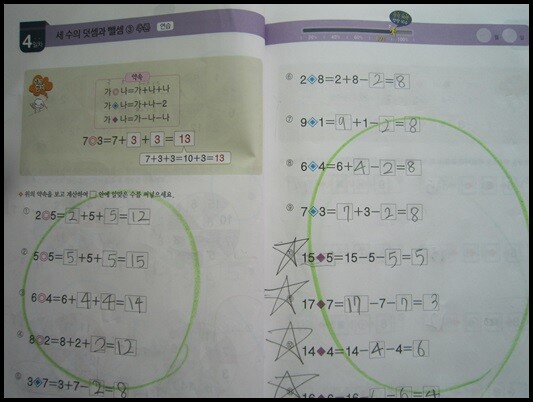 4일차 세 수의 덧셈과 뺄셈 ③ 수폼 연습
약속
가◎나=가+나+나
가◈나=가+나-2
가◆나=가-나-나
7◎3=7+3+3=13
7+3+3=10+3=13
※ 위의 약속을 보고 계산하여 □안에 알맞은 수를 써넣으세요.
① 2◎5=2+5+5=12
② 5◎5=5+5+5=15
③ 6◎4=6+4+4=14
④ 8◎2=8+2+2=12
⑤ 3◈7=3+7-2=8
⑥ 2◈8=2+8-2=8
⑦ 9◈1=9+1-2=8
⑧ 6◈4=6+4-2=8
⑨ 7◈3=7+3-2=8
15◆5=15-5-5=5
17◆7=17-7-7=3
14◆4=14-4-4=6
16◆6=16-6-6=4